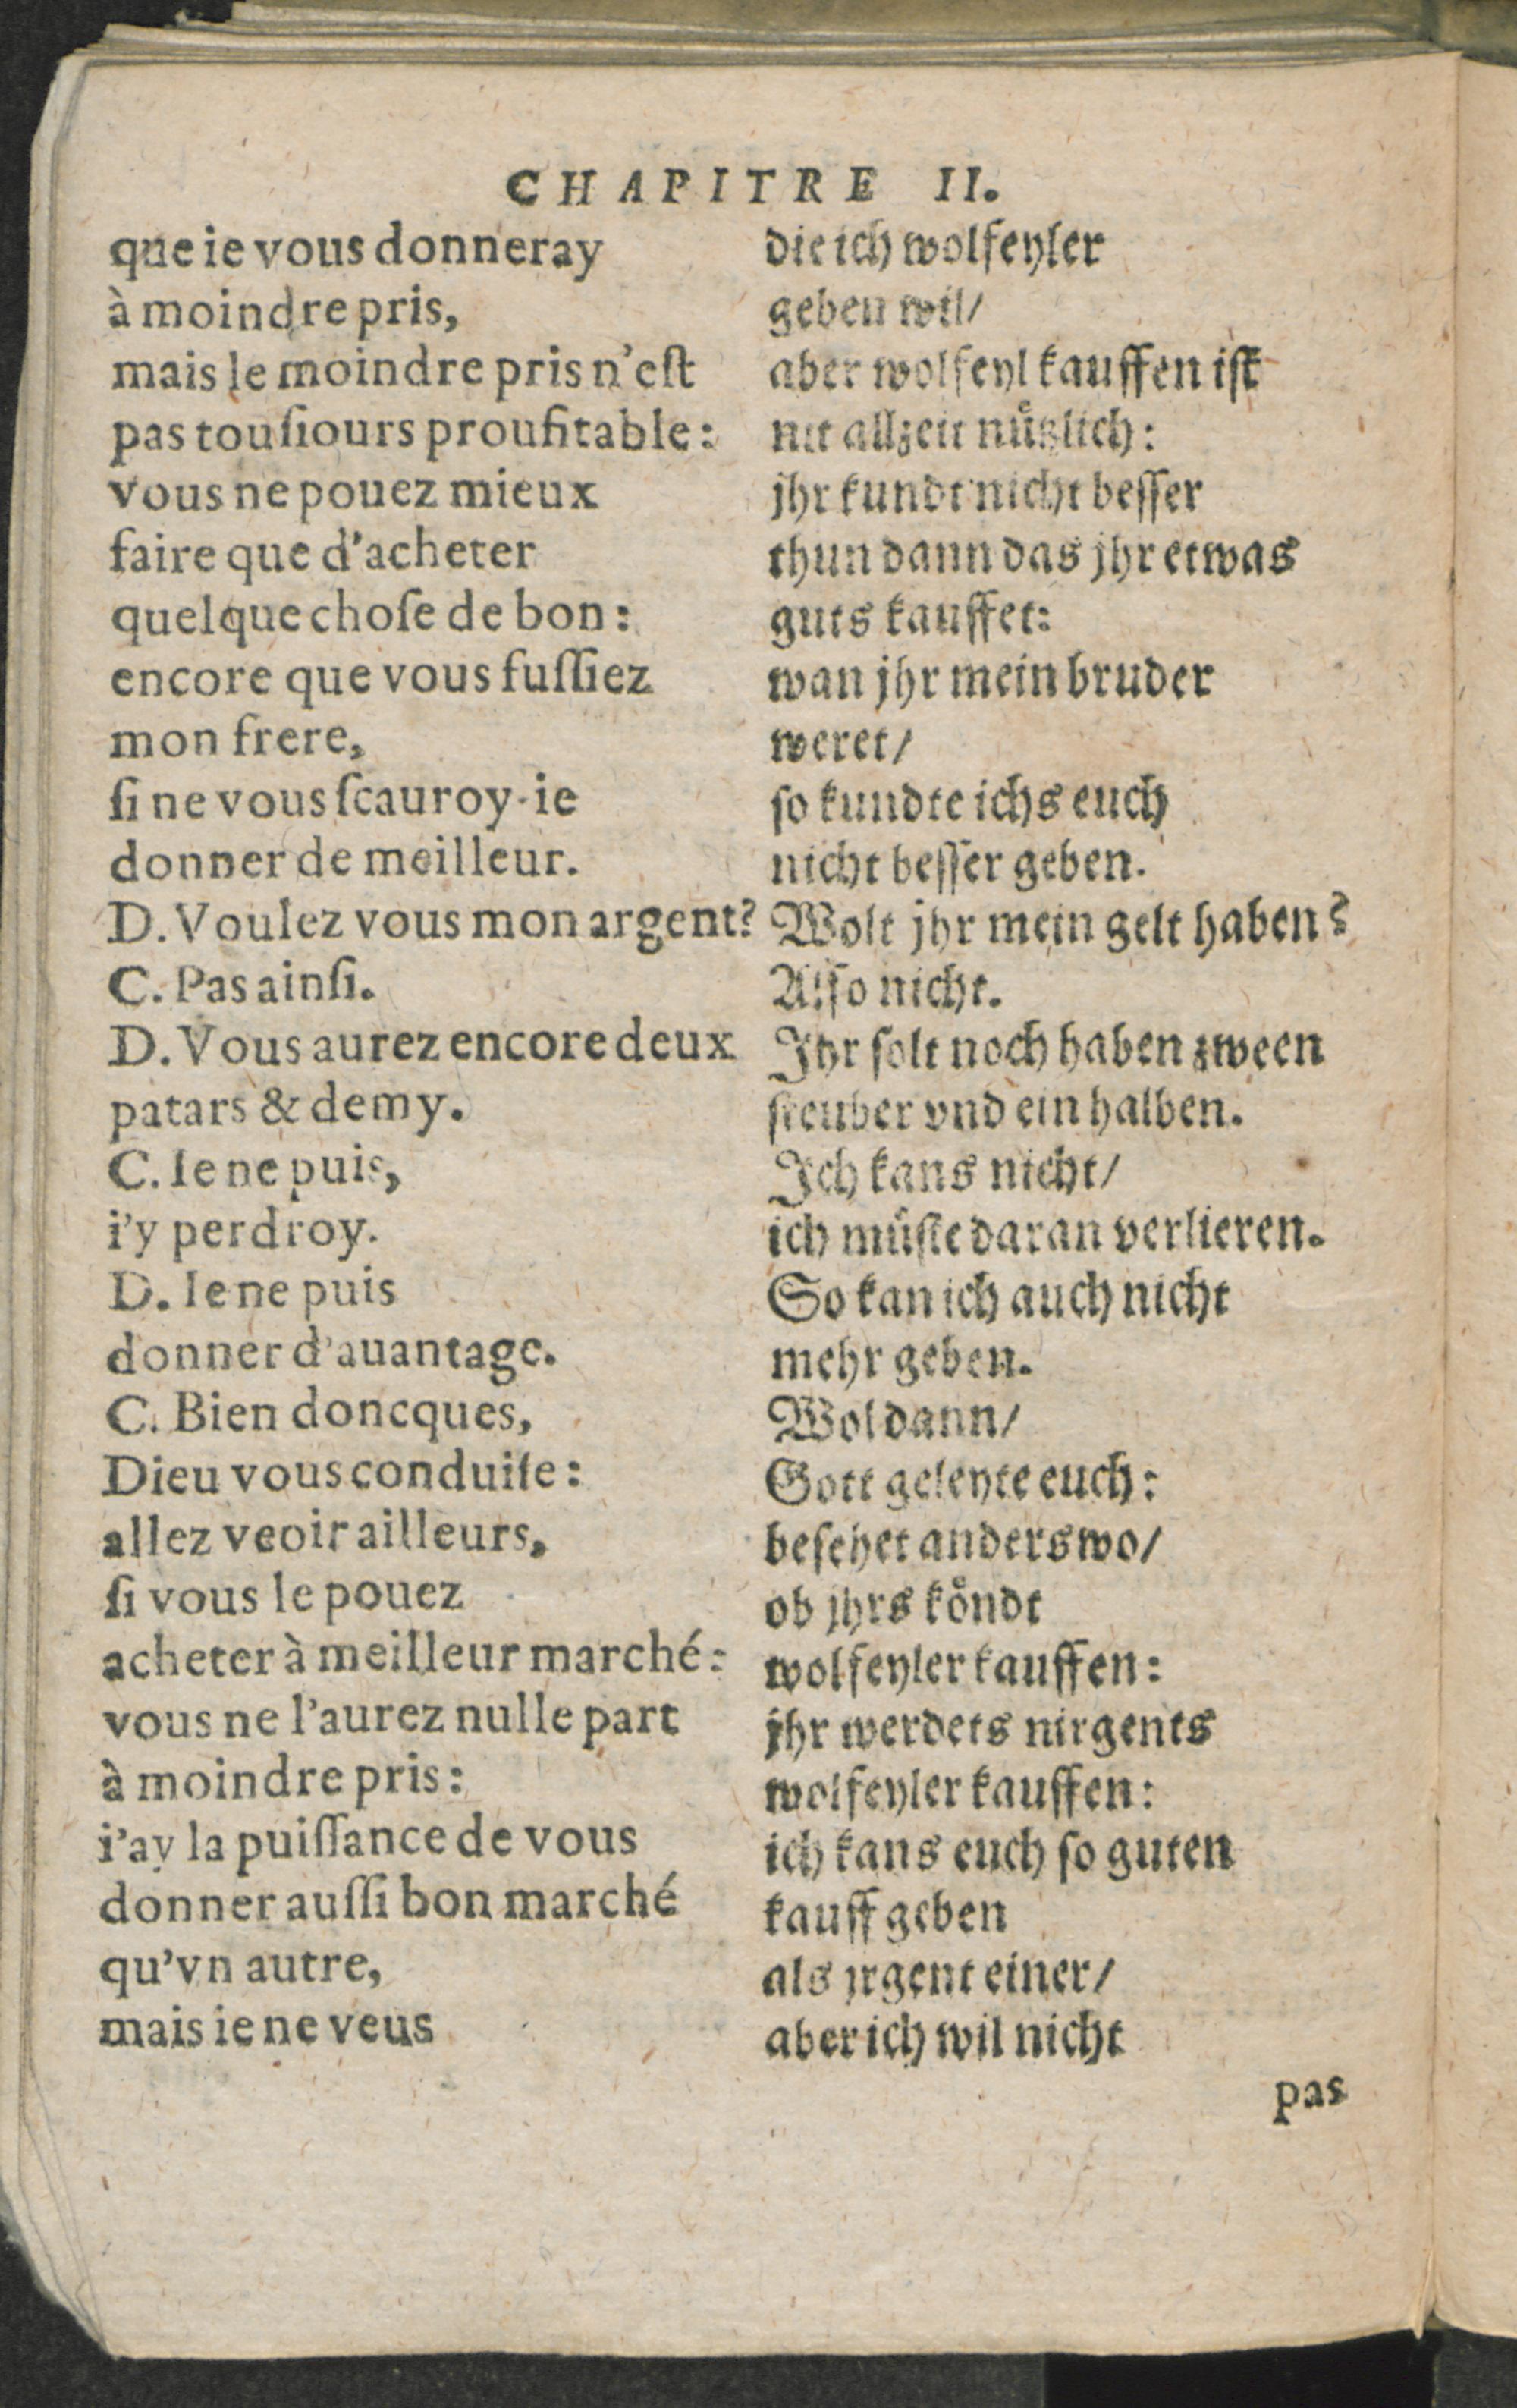 CHAPITRE II.
que ie vous donneray
à moindre pris,
mais le moindre pris n'eſt
pas touſiours proufitable:
vous ne pouez mieux
faire que d'acheter
quelque choſe de bon:
encore que vous fuſſiez
mon frere,
ſi ne vous ſcauroy-ie
donner de meilleur.
D. Voulez vous mon argent?
C. Pas ainſi.
D. Vous aurez encore deux
patars & demy.
C. Ie ne puis,
i'y perdroy.
D. Ie ne puis
donner d'auantage.
C. Bien doncques,
Dieu vous conduiſe:
allez veoir ailleurs,
ſi vous le pouez
acheter à meilleur marché:
vous ne l'aurez nulle part
à moindre pris:
i'ay la puiſſance de vous
donner auſſi bon marché
qu'vn autre,
mais ie ne veus
die ich wolfeyler
geben wil/
aber wolfeyl kauffen iſt
nit allzeit nuͤtzlich:
jhr kundt nicht beſſer
thun dann das jhr etwas
guts kauffet:
wan jhr mein bruder
weret/
ſo kundte ichs euch
nicht beſſer geben.
Wolt jhr mein gelt haben?
Alſo nicht.
Ihr ſolt noch haben zween
ſteuber vnd ein halben.
Ich kans nicht/
ich muͤſte daran verlieren.
So kan ich auch nicht
mehr geben.
Wol dann/
Gott geleyte euch:
beſehet anderswo/
ob jhrs koͤndt
wolfeyler kauffen:
jhr werdets nirgents
wolfeyler kauffen:
ich kans euch ſo guten
kauff geben
als jrgent einer/
aber ich wil nicht
pas